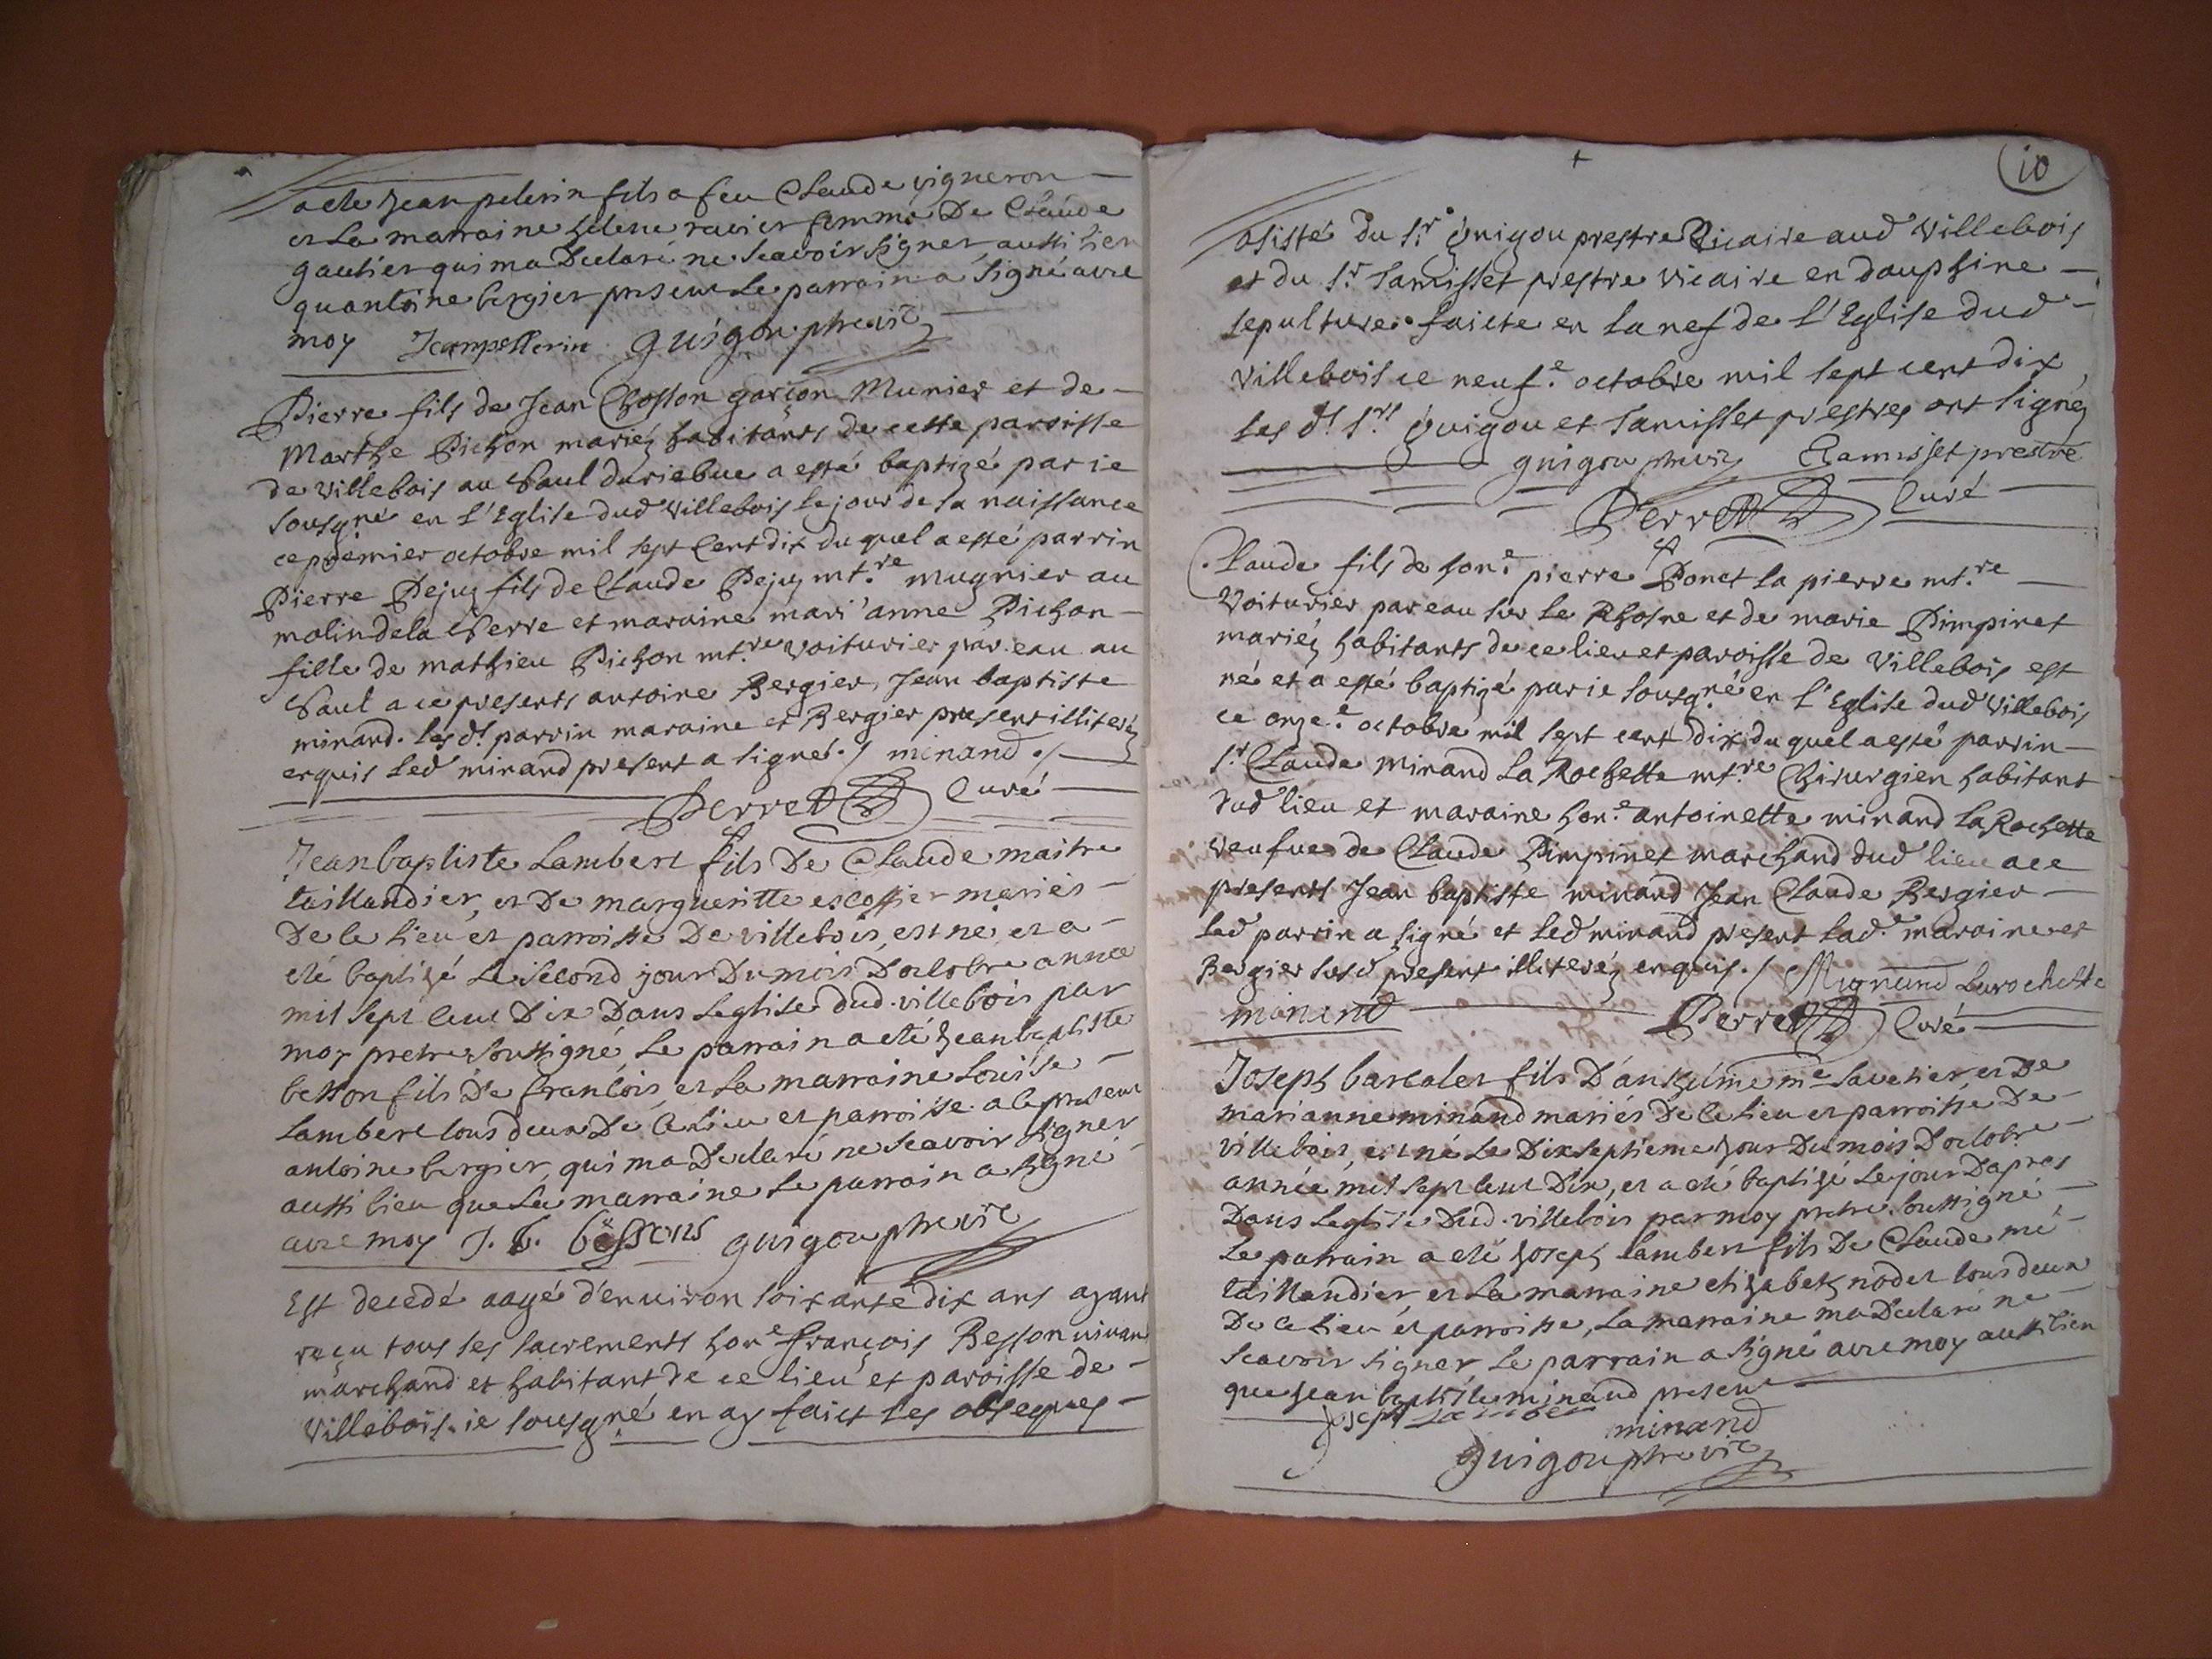 a eté Jean pelerin fils a feu Claude vigneron
et La marraine helene ravier femme De Claude
gautier qui ma Declaré ne Scavoir signer, aussi bien
quantoine bergier present Le parrain a signé avec
moy Jean pellerin guigou ptre vic
Pierre fils de Jean Chosson garçon Munier et de
Marthe Pichon mariéz habitants de cette paroisse
de villebois au Saul a esté baptizé par ie
sousgné en l'Eglise dud villebois le jour de sa naissance
ce premier octobre mil sept Cent dix du quel a esté parrin
Pierre Pejuz fils de Claude Pejuz mt.re mugnier au
molin de la Serre et maraine mari'anne Pichon
fille de mathieu Pichon mt.re voiturier par eau au
Saul a ce presents antoine Bergier, Jean baptiste
minand. les d.s parrin maraine et Bergier present illiteréz
enquis led minand present a signé ./ minand ./
Perret Curé
Jean baptiste Lambert fils De Claude maitre
taillandier, et De margueritte escoffier mariés
De ce Lieu et parroisse De villebois, est né, et a
eté baptizé Le Second jour Du mois D'octobre année
mil sept cent Dix Dans Leglise dud. villebois par
moy pretre soussigné, Le parrain a eté Jean baptiste
besson fils De francois, et La marraine Louise
Lambert tous deux De ce Lieu et parroisse. a ce present
antoine bergier, qui ma Declaré ne Scavoir signer
aussi bien que La marraine Le parrain a signé
avec moy J. b. bessons guigou ptre vic
Est decedé aagé d'enuiron soixante dix ans ayant
reçu tous ses sacrements hon.e françois Besson vivant
marchand et habitant de ce lieu et paroisse de
Villebois. ie sousgné en ay faict les obseques
10
assisté du s.r guigou prestre Vicaire aud Villebois
et du s.r Ramisset prestre vicaire en dauphine
sepulture faicte en la nef de l'Eglise dud
villebois ce neuf.e octobre mil sept cent dix,
les d.s s.rs guigou et Ramisset prestres ont signéz
guigou ptre vic Ramisset prestre
Perret Curé
Claude fils de hon.e pierre Ponet la pierre mt.re
voiturier par eau sur le Rhosne et de marie Pimpinet
mariéz habitants de ce lieu et paroisse de Villebois est
né et a esté baptizé par ie sousg.né en l'Eglise dud Villebois
ce onze.e octobre mil sept cent dix du quel a esté parrin
s.r Claude minand La Rochette mt.re Chirurgien habitant
dud lieu et maraine hon.e antoinette minand La Rochette
veufue de Claude Pimpinet marchand dud lieu a ce
presents Jean baptiste minand Jean Claude Bergier
led parrin a signé et led minand present lad. maraine et
Bergier susd present illiteréz enquis ./ Mignand Larochette
minand Perret Curé
Joseph barcalet fils D'anthelme me Savetier, et De
marianne minand mariés De ce Lieu et parroisse De
villebois, est né Le Dixseptieme jour Du mois D'octobre
année mil sept cent Dix, et a eté baptizé Le jour Dapres
Dans Leglise Dud. villebois par moy pretre soussigné
Le parrain a eté Joseph Lambert fils De Claude me
taillandier, et La marraine elizabeth nodet tous deux
De ce Lieu et parroisse, La marraine ma Declaré ne
Scavoir signer Le parrain a signé avec moy aussi bien
que Jean baptiste minand present
Joseph Lamber
minand
guigou ptre vic